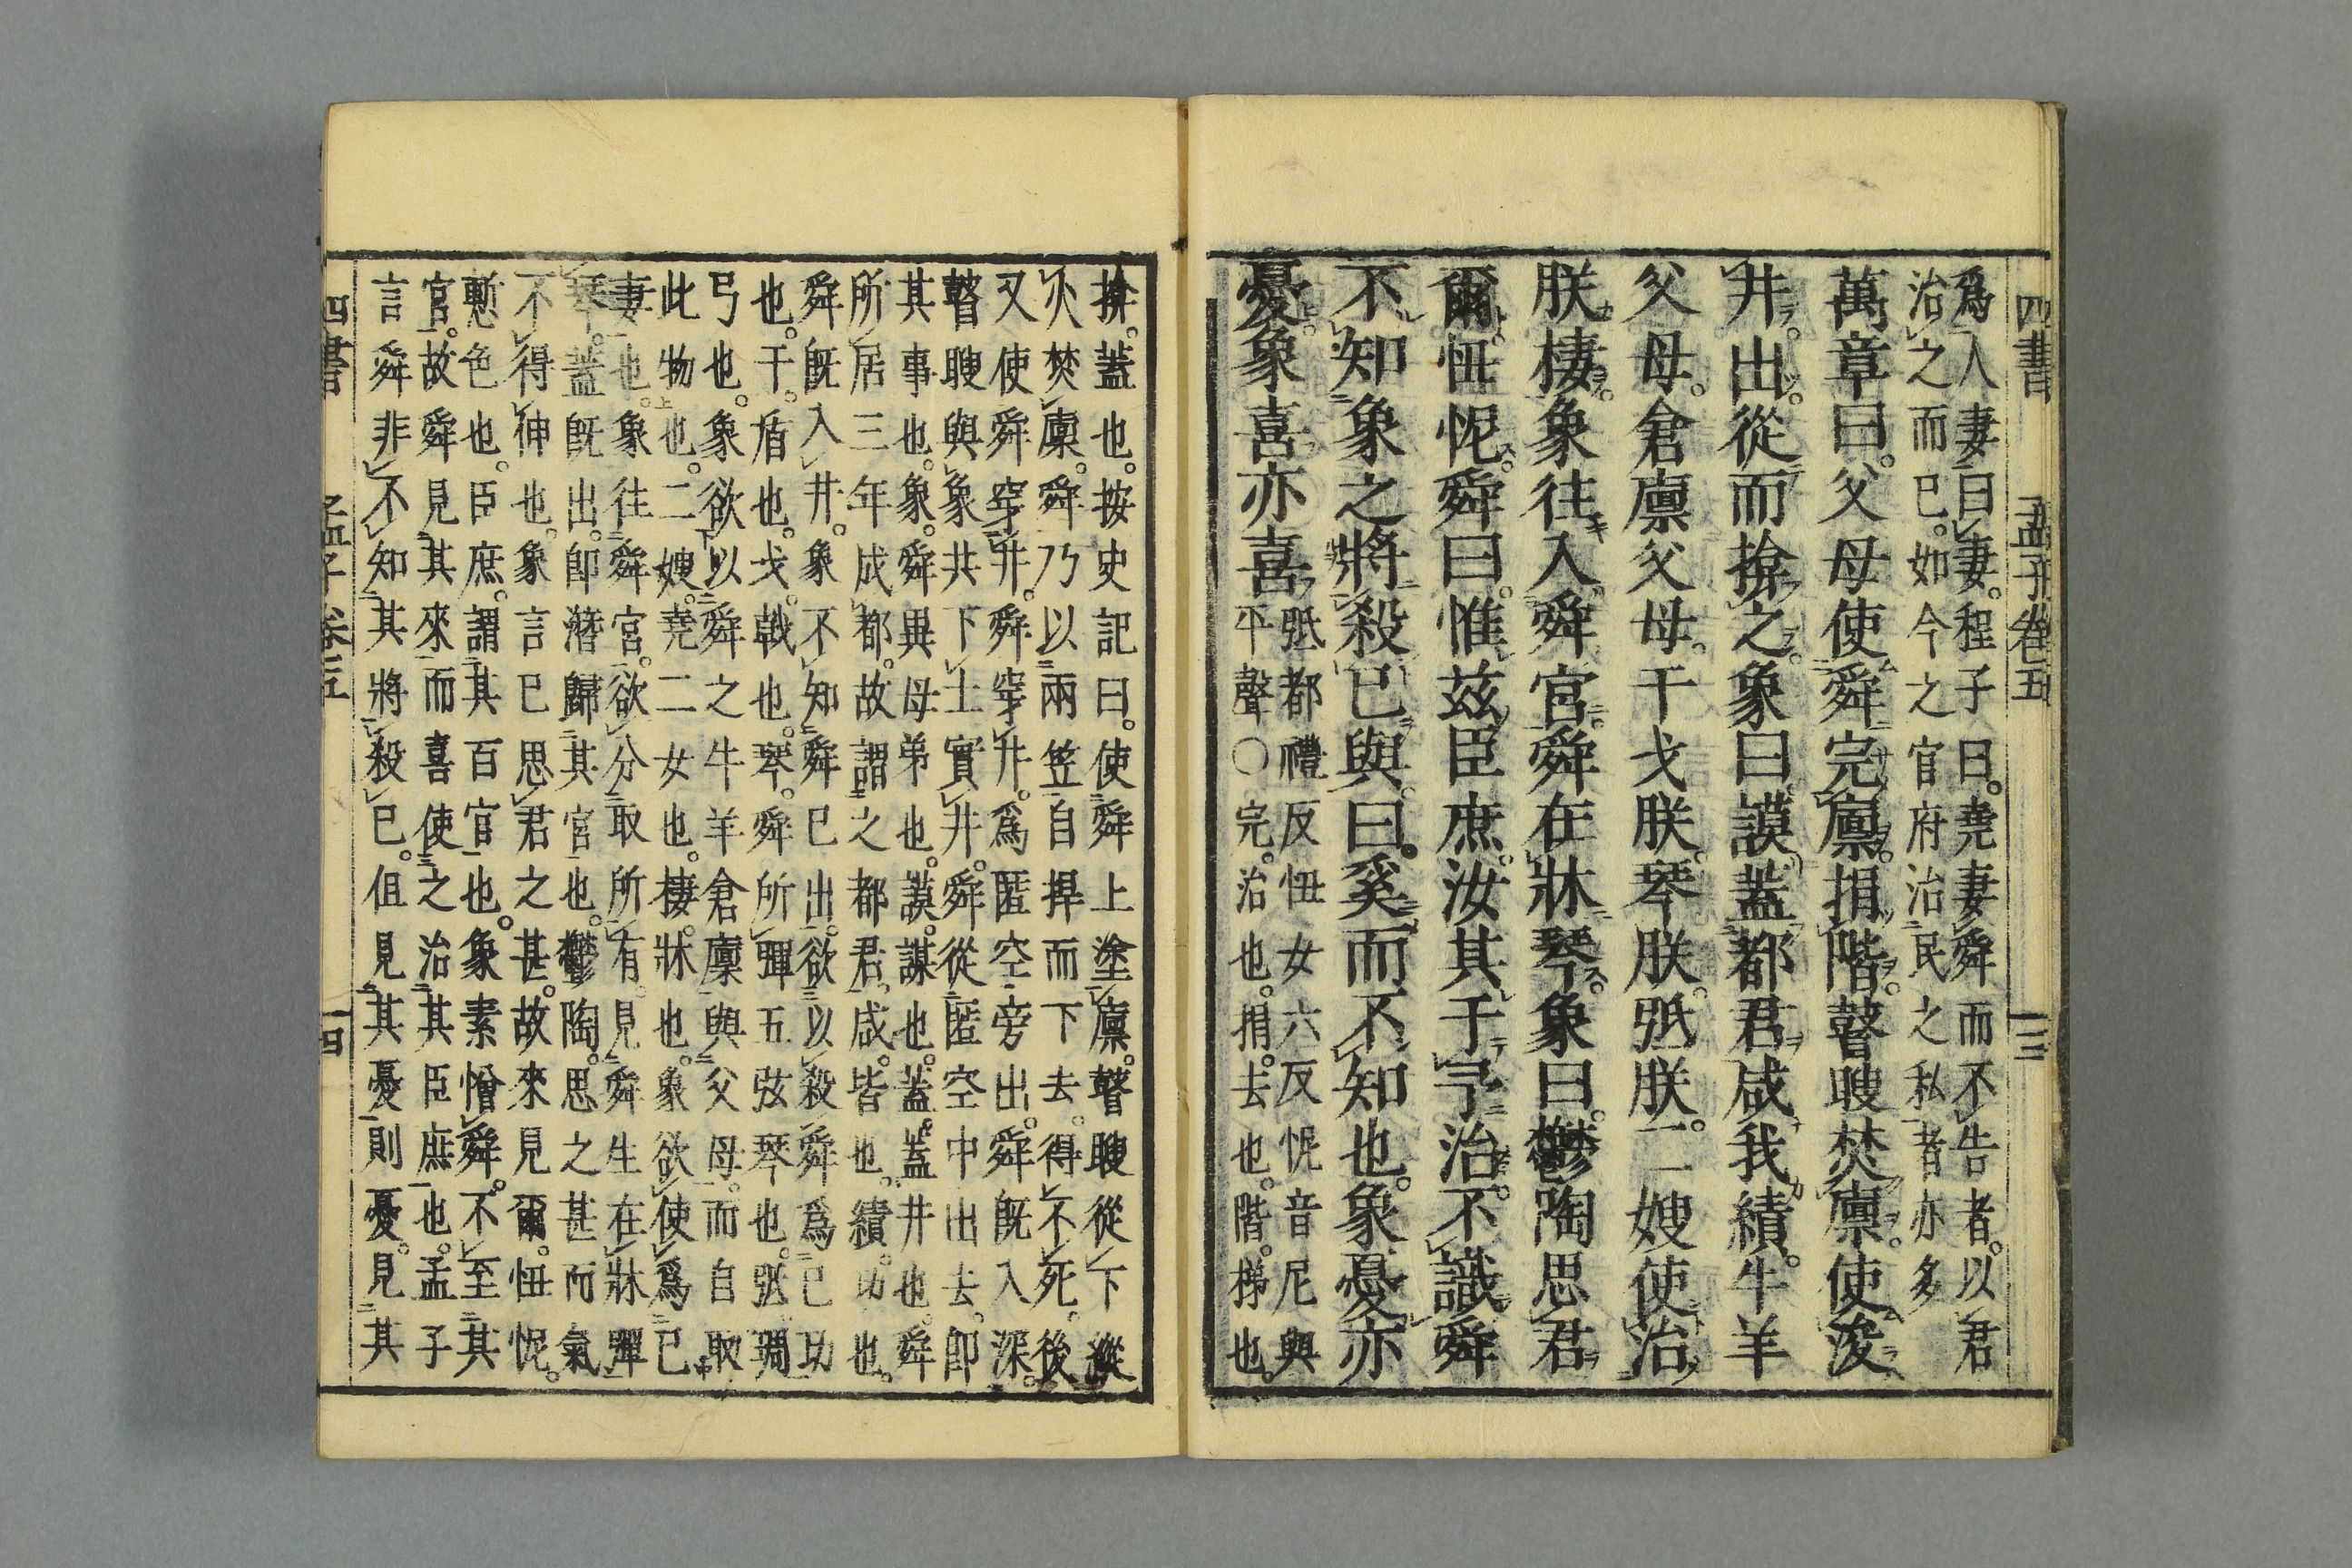 四書 孟子卷五 三
爲人妻曰妻。程子曰。堯妻舜而不告者。以君
治之而已。如今之官府治民之私者亦多
萬章曰。父母使舜完廩。捐階。瞽瞍焚廩。使浚
井。出。從而揜之。象曰。謨蓋都君咸我績。牛羊
父母。倉廩父母。干戈朕。琴朕。弤朕。二嫂使治
朕棲。象往入舜宮。舜在牀琴。象曰。鬱陶思君
爾。忸怩。舜曰。惟茲臣庶。汝其于予治。不識舜
不知象之將殺已與。曰。奚而不知也。象憂亦
憂。象喜亦喜
弤都禮反忸女六反怩音尼與
平聲〇完。治也。捐。去也。階。梯也。
揜。蓋也。按史記曰。使舜上塗廩。瞽瞍從下縱
火焚廩。舜乃以兩笠自捍而下去。得不死。後
又使舜穿井。舜穿井。爲匿空旁出。舜既入深。
瞽瞍與象共下土實井。舜從匿空中出去。卽
其事也。象。舜異母弟也。謨。謀也。蓋。蓋井也。舜
所居三年成都。故謂之都君。咸。皆也。績。功也。
舜既入井。象不知舜已出。欲以殺舜爲已功
也。干。盾也。戈。戟也。琴。舜所彈五弦琴也。弤。琱
弓也。象欲以舜之牛羊倉廩與父母。而自取
此物也。二嫂。堯二女也。棲。牀也。象欲使爲已
妻也。象往舜宮。欲分取所有。見舜生在牀彈
琴。蓋既出。卽潛歸其宮也。鬱陶。思之甚而氣
不得伸也。象言已思君之甚。故來見爾。忸怩。
慙色也。臣庶。謂其百官也。象素憎舜。不至其
宮。故舜見其來而喜使之治其臣庶也。孟子
言舜非不知其將殺已。但見其憂則憂。見其
四書 孟子卷五 四